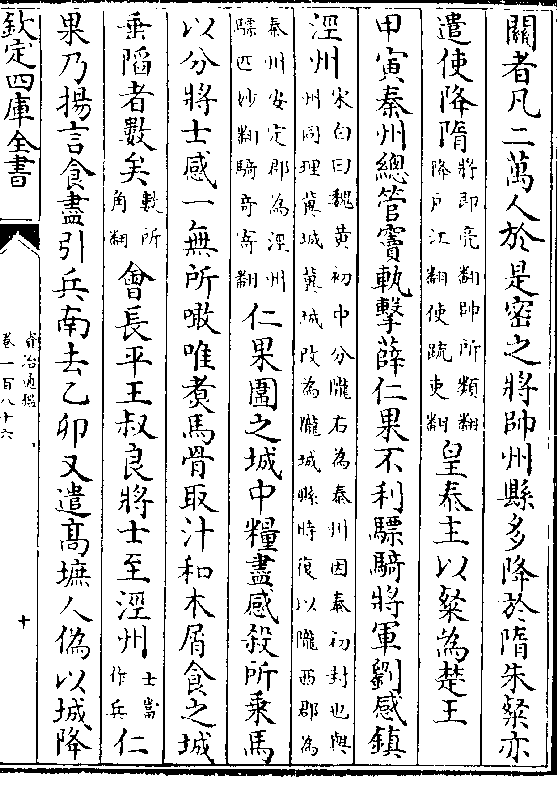 關者凡二萬人於是密之將帥州縣多降於隋朱粲亦
遣使降隋將即亮翻帥所類翻降戶江翻使疏吏翻皇泰主以粲為楚王
甲寅秦州總管竇軌擊薛仁果不利驃騎將軍劉感鎮
涇州宋白曰魏黄初中分隴右為秦州因秦初封也與州同理冀城冀城改為隴城縣時復以隴西郡為
秦州安定郡為涇州驃匹妙翻騎奇寄翻仁果圍之城中糧盡感殺所乗馬
以分將士感一無所噉唯煑馬骨取汁和木屑食之城
垂䧟者數矣數所角翻會長平王叔良將士至涇州士當作兵仁
果乃揚言食盡引兵南去乙卯又遣髙墌人偽以城降
欽定四庫全書
資治通鑑
卷一百八十六
十